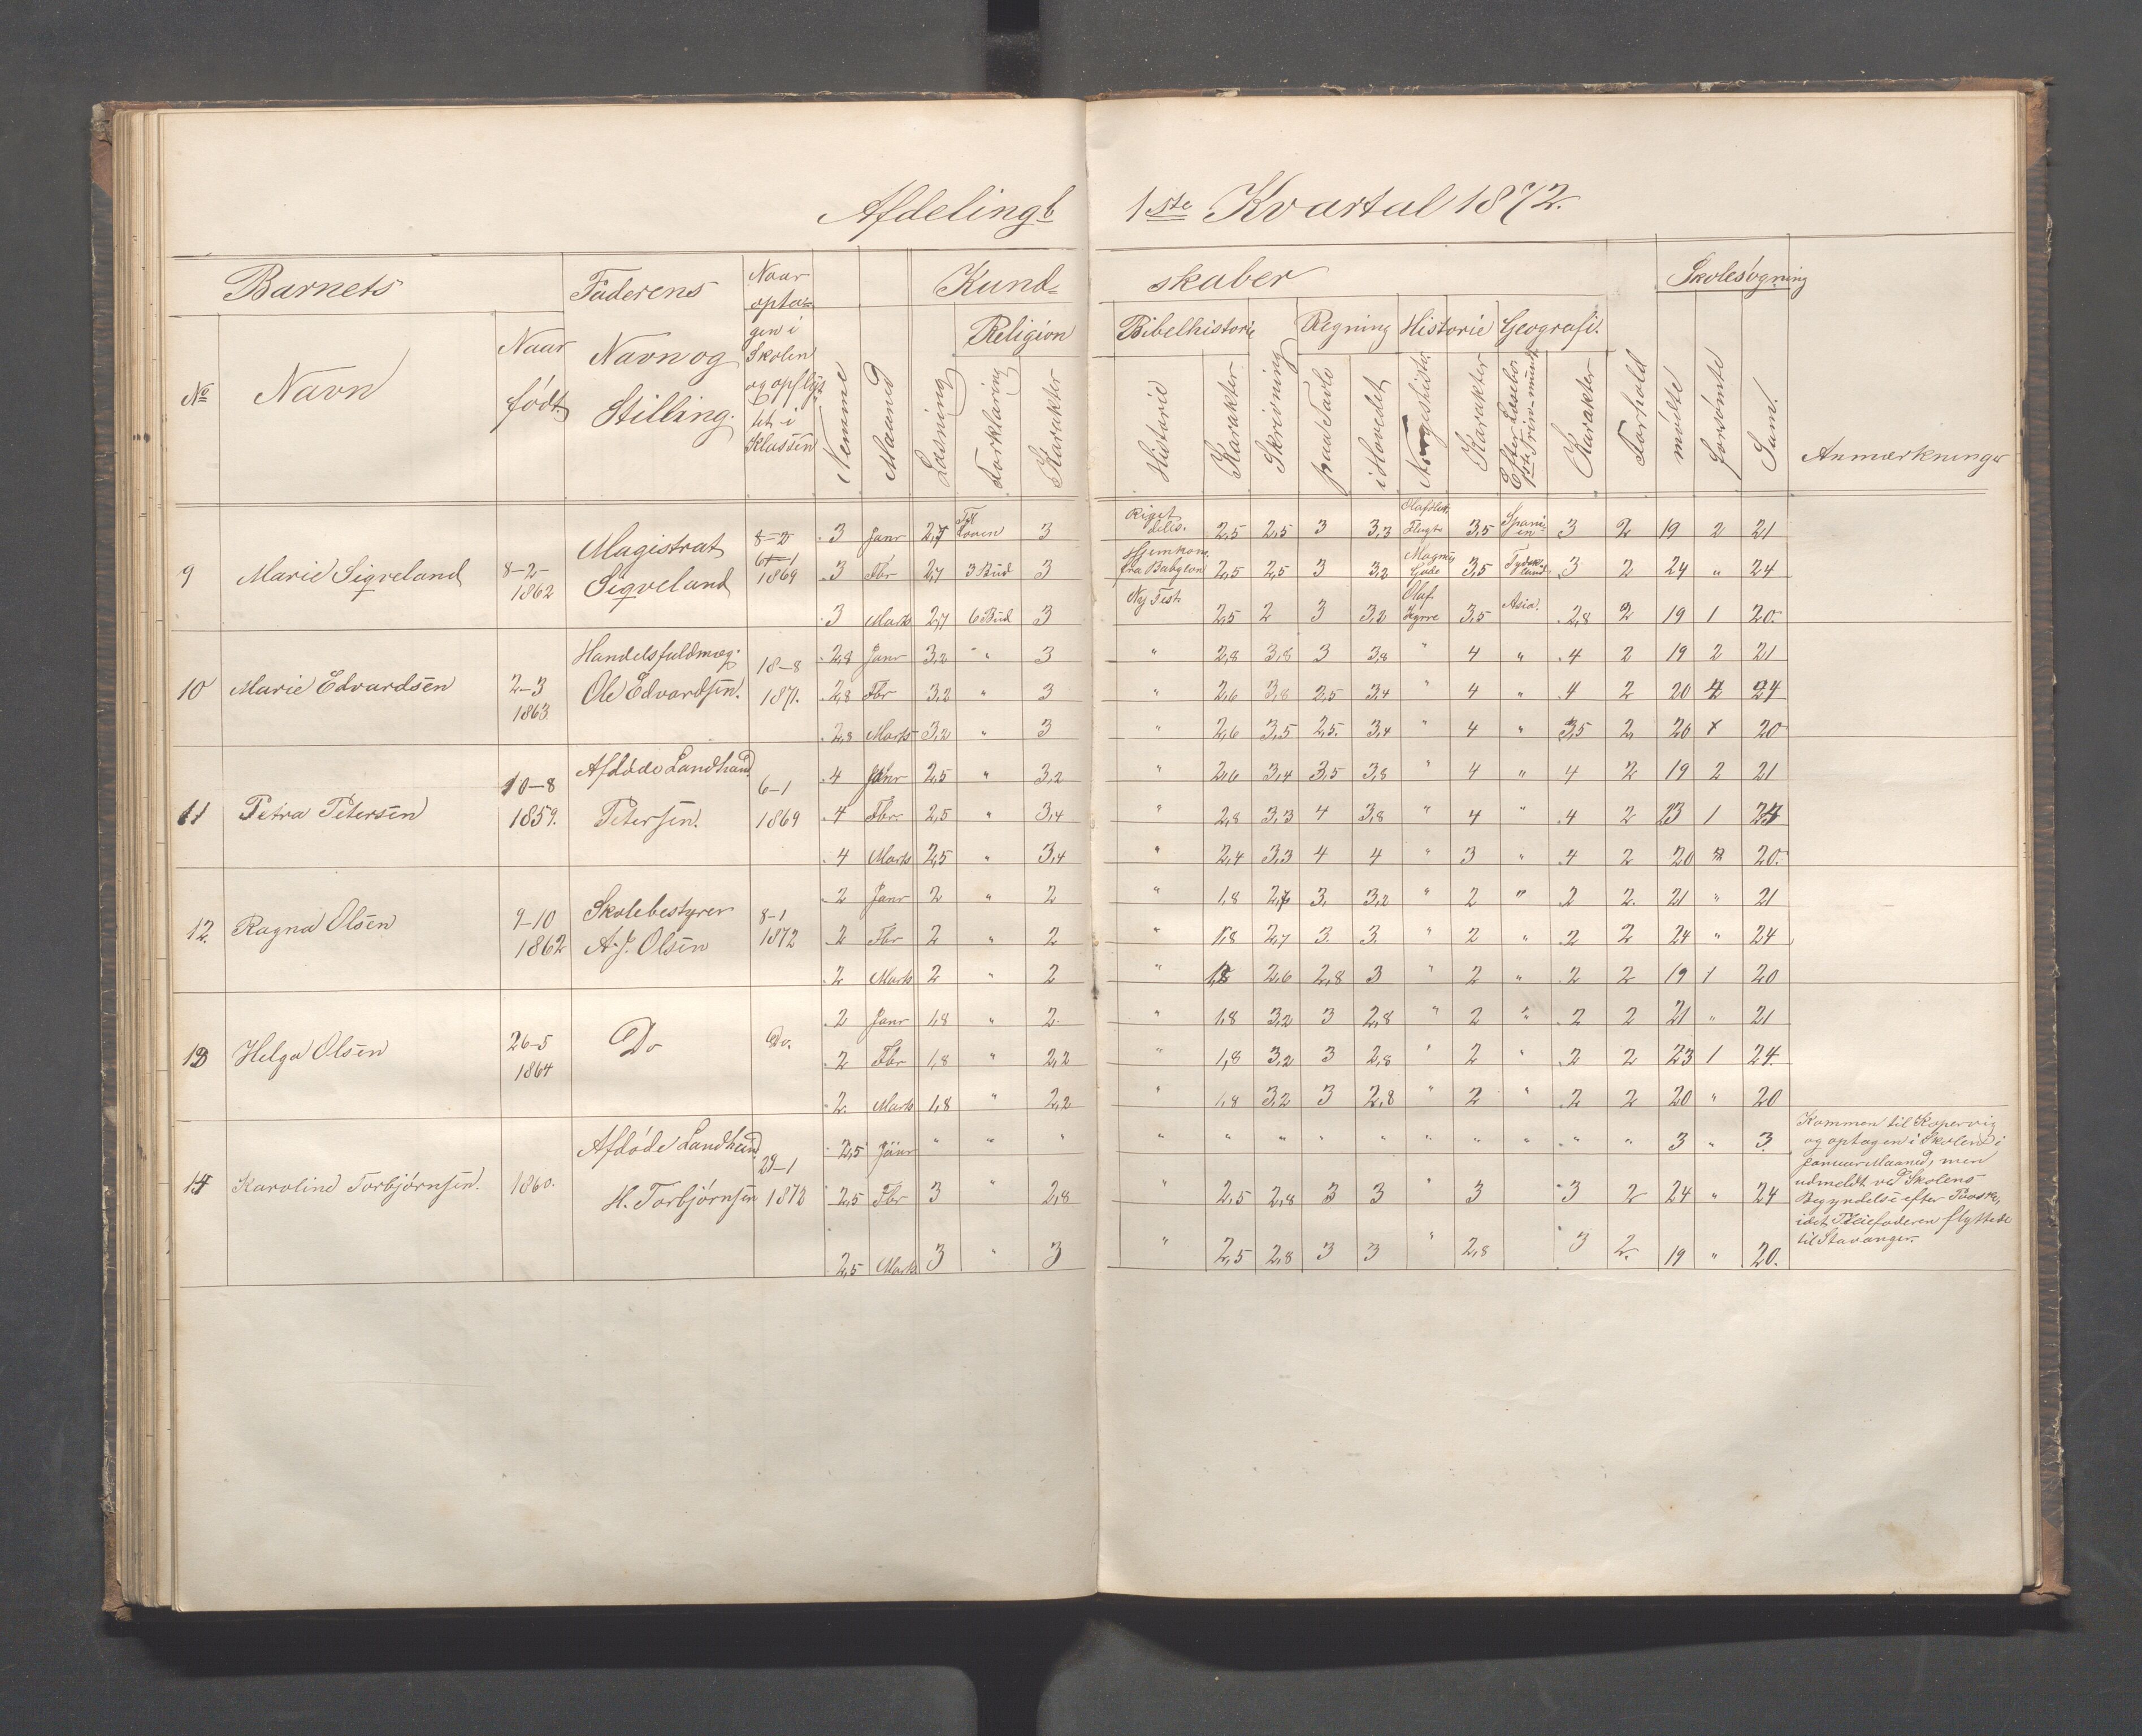 Afdeling b 1ste Kvartal 1872.
Barnets Faderens Naar optagen i Skolen og opflyttet i Klassen Nemme Maaned Kund- skaber Forhold Skolesøgning Anmærkninger
No Navn Naar født Navn og Stilling. Læsning Religion Bibelhistorie Skrivning Regning Historie Geografi. mødte forsømte Sum.
Forklaring Karakter Historie Karakter paa Tavle i Hovedet Norgeshistor. Karakter Efter Læsebog Karakter
9 Marie Sigveland 8-2-1862 Magistrat Sigveland 8-2 6-1 1869
3 Janr 2,7 Til Loven 3 Riget delts. 2,5 2,5 3 3,3 Flugt 3,5 Spanien 3 2 19 2 21
3 Fbr 2,7 3 Bud 3 Hjemkom. fra Babylon 2,5 2,5 3 3,2 Magnus Gode 3,5 Tydskland 3 2 24 " 24
3 Marts 2,7 6 Bud 3 Ny Test. 2,5 2 3 3,2 Olaf Kyrre 3,5 Asia. 2,8 2 19 1 20.
10 Marie Edvardsen 2-3 1863. Handelsfuldmæg. Ole Edvardsen. 18-8 1871.
2,8 Janr 3,2 " 3 " 2,8 3,8 3 3,8 " 4 " 4 2 19 2 21
2,8 Fbr 3,2 " 3 " 2,6 3,8 2,5 3,4 " 4 " 4 2 20 4 24
2,8 Marts 3,2 " 3 " 2,6 3,5 2,5. 3,4 " 4 " 3,5 2 20 20
11 Petra Petersen 10-8 1859. Afdøde Landhand. Petersen. 6-1 1869
4 Janr 2,5 " 3,2 " 2,6 3,4 3,5 3,8 " 4 " 4 2 19 2 21
4 Fbr 2,5 " 3,4 " 2,8 3,3 4 3,8 " 4 " 4 2 23 1 24
4 Marts 2,5 " 3,4 " 2,4 3,3 4 4 " 3 " 4 2 20 20.
12. Ragna Olsen 9-10 1862 Skolebestyrer A. J. Olsen 8-1 1872
2 Janr 2 " 2 " 1,8 2,7 3. 3,2 " 2 " 2 2. 21 " 21
2 Fbr 2 " 2 " 1,8 2,7 3. 3. " 2 " 2 2 24 " 24
2 Marts 2 " 2 " 1,8 2,6 2,8 3 " 2 " 2 2 19 1 20
13 Helga Olsen 26-5 1864 Do Do.
2 Janr 1,8 " 2. " 1,8 3,2 3 2,8 " 2 " 2 2 21 " 21
2 Fbr 1,8 " 2,2 " 1,8 3,2 3 2,8 " 2 " 2 2 23 1 24.
2. Marts 1,8 " 2,2 " 1,8 3,2 3 2,8 " 2 " 2 2 20 " 20
14 Karoline Torbjørnsen. 1860. Afdøde Landhand. H. Torbjørnsen 29-1 1872
2,5 Janr " " " " " " " " " " " " " 3 " 3.
2,5 Fbr 3 " 2,8 " 2,5 2,8 3 3 " 3 3 2 24 " 24
2,5 Marts 3 " 3 " 2,5 2,8 3 3 " 2,8 3 2. 19 " 20.
Kommen til Kopervig
og optagen i Skolen i
Januar Maaned, men
udmeldt ved Skolens
Begyndelse efter Paaske,
idet Pleiefaderen flyttede
til Stavanger.